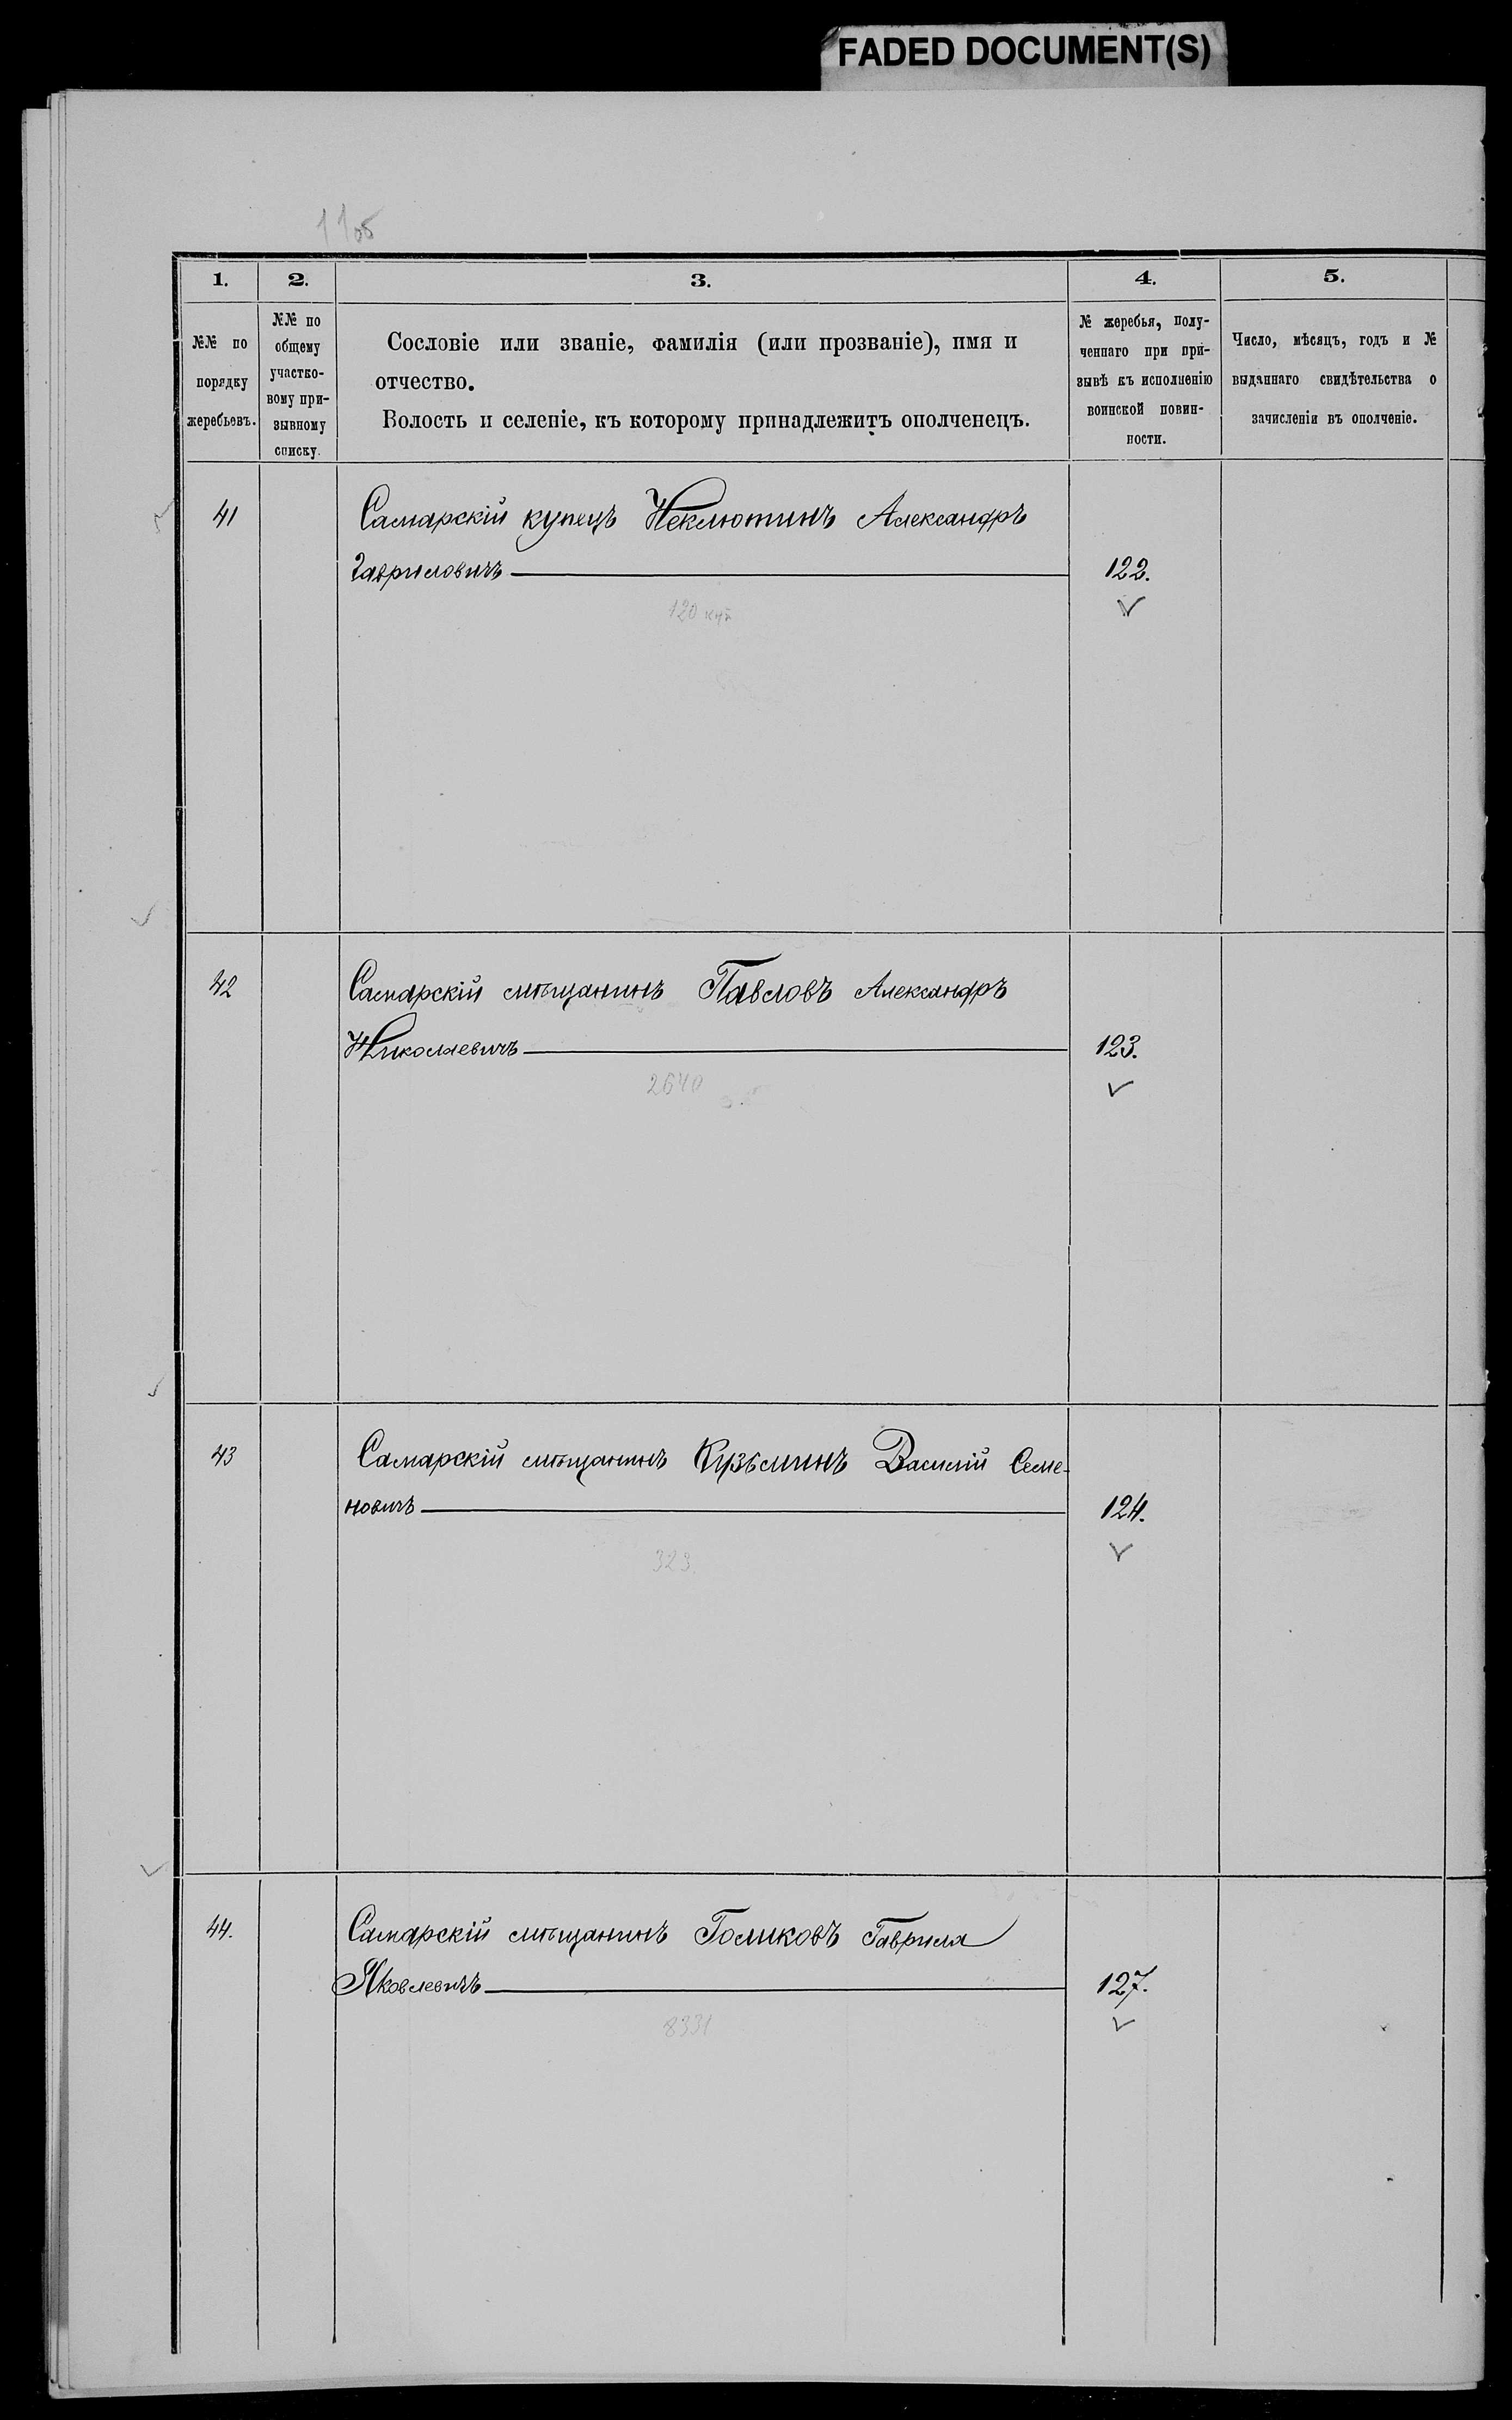 FADED DOCUMENT(S)
11об
1.
2.
3.
4.
5.
№№ по
порядку
жеребьевъ.
№№ по
общему
участко-
вому при-
зывному
списку.
Сословіе или званіе, фамилія (или прозваніе), имя и
отчество.
Волость и селеніе, къ которому принадлежитъ ополченецъ.
№ жеребья, полу-
ченнаго при при-
зывѣ къ исполненію
воинской повин-
ности.
Число, мѣсяцъ, годъ и №
выданнаго свидѣтельства о
зачисленіи въ ополченіе.
41
Самарскій купецъ Неклютинъ Александръ
Гавриловичъ
122.
120 куп
42
Самарскій мѣщанинъ Павловъ Александръ
Николаевичъ
123.
2640
43
Самарскій мѣщанинъ Кузьминъ Василій Семе-
новичъ
124.
323
44.
Самарскій мѣщанинъ Голиковъ Гаврила
Яковлевичъ
127.
8331